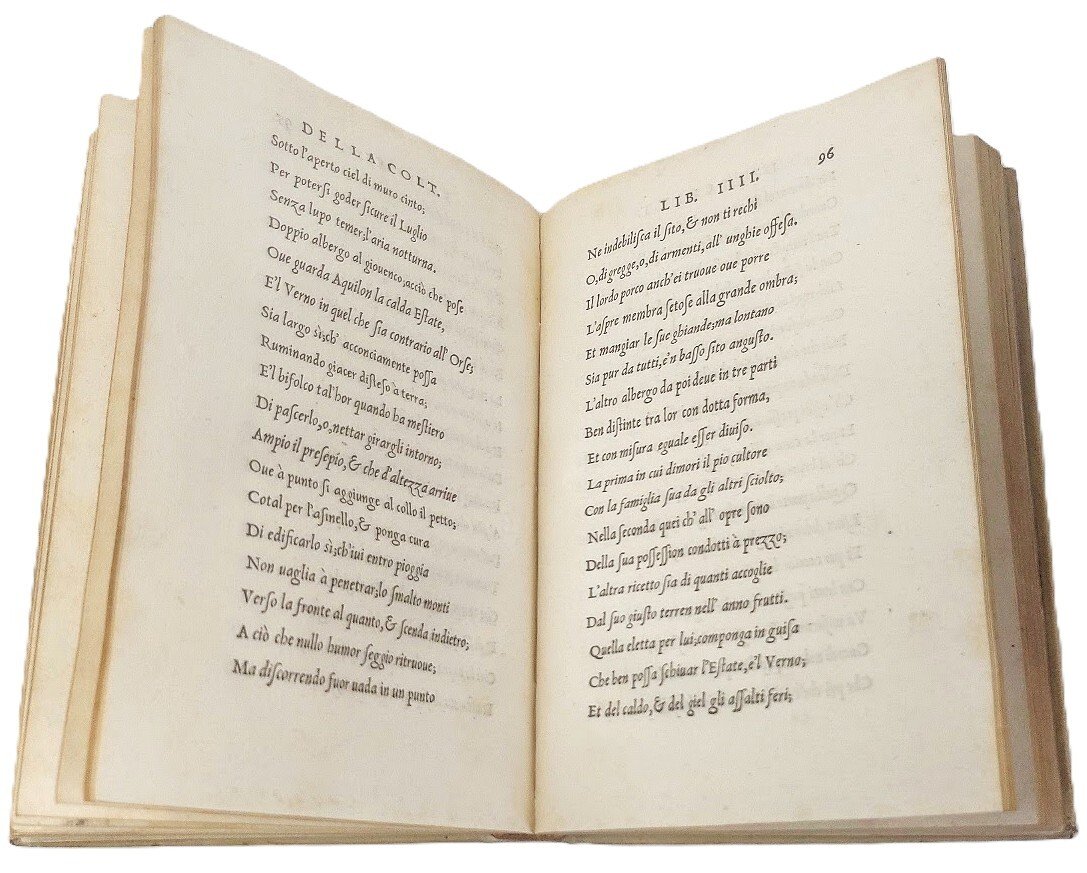 DELLA COLT.
Sotto l'aperto ciel di muro cinto;
Per poterſi goder ſicure il Luglio
Senza lupo temer; l'aria notturna.
Doppio albergo al giouenco, acciò che poſe
Oue guarda Aquilon la calda Eſtate,
E'l Verno in quel che ſia contrario all'Orſe;
Sia largo sì; ch' acconciamente poſſa
Ruminando giacer diſteſo à terra;
E'l bifolco tal'hor quando ha meſtiero
Di paſcerlo, o, nettar girargli intorno;
Ampio il preſepio, & che d'altezza arriue
Oue à punto ſi aggiunge al collo il petto;
Cotal per l'aſinello, & ponga cura
Di edificarlo sì; ch'iui entro pioggia
Non uaglia à penetrar; lo ſmalto monti
Verſo la fronte al quanto, & ſcenda indietro;
A ciò che nullo humor ſeggio ritruoue;
Ma diſcorrendo fuor uada in un punto
LIB. IIII. 96
Ne indebiliſca il ſito, & non ti rechi
O, di gregge, o, di armenti, all' unghie offeſa.
Il lordo porco anch'ei truoue oue porre
L'aſpre membra ſetoſe alla grande ombra;
Et mangiar le ſue ghiande; ma lontano
Sia pur da tutti, e'n baſſo ſito anguſto.
L'altro albergo da poi deue in tre parti
Ben diſtinte tra lor con dotta forma,
Et con miſura eguale eſſer diuiſo.
La prima in cui dimori il pio cultore
Con la famiglia ſua da gli altri ſciolto;
Nella ſeconda quei ch' all' opre ſono
Della ſua poſſeſſion condotti à prezzo;
L'altra ricetto ſia di quanti accoglie
Dal ſuo giuſto terren nell' anno frutti.
Quella eletta per lui; componga in guiſa
Che ben poſſa ſchiuar l'Eſtate, e'l Verno;
Et del caldo, & del giel gli aſſalti feri;